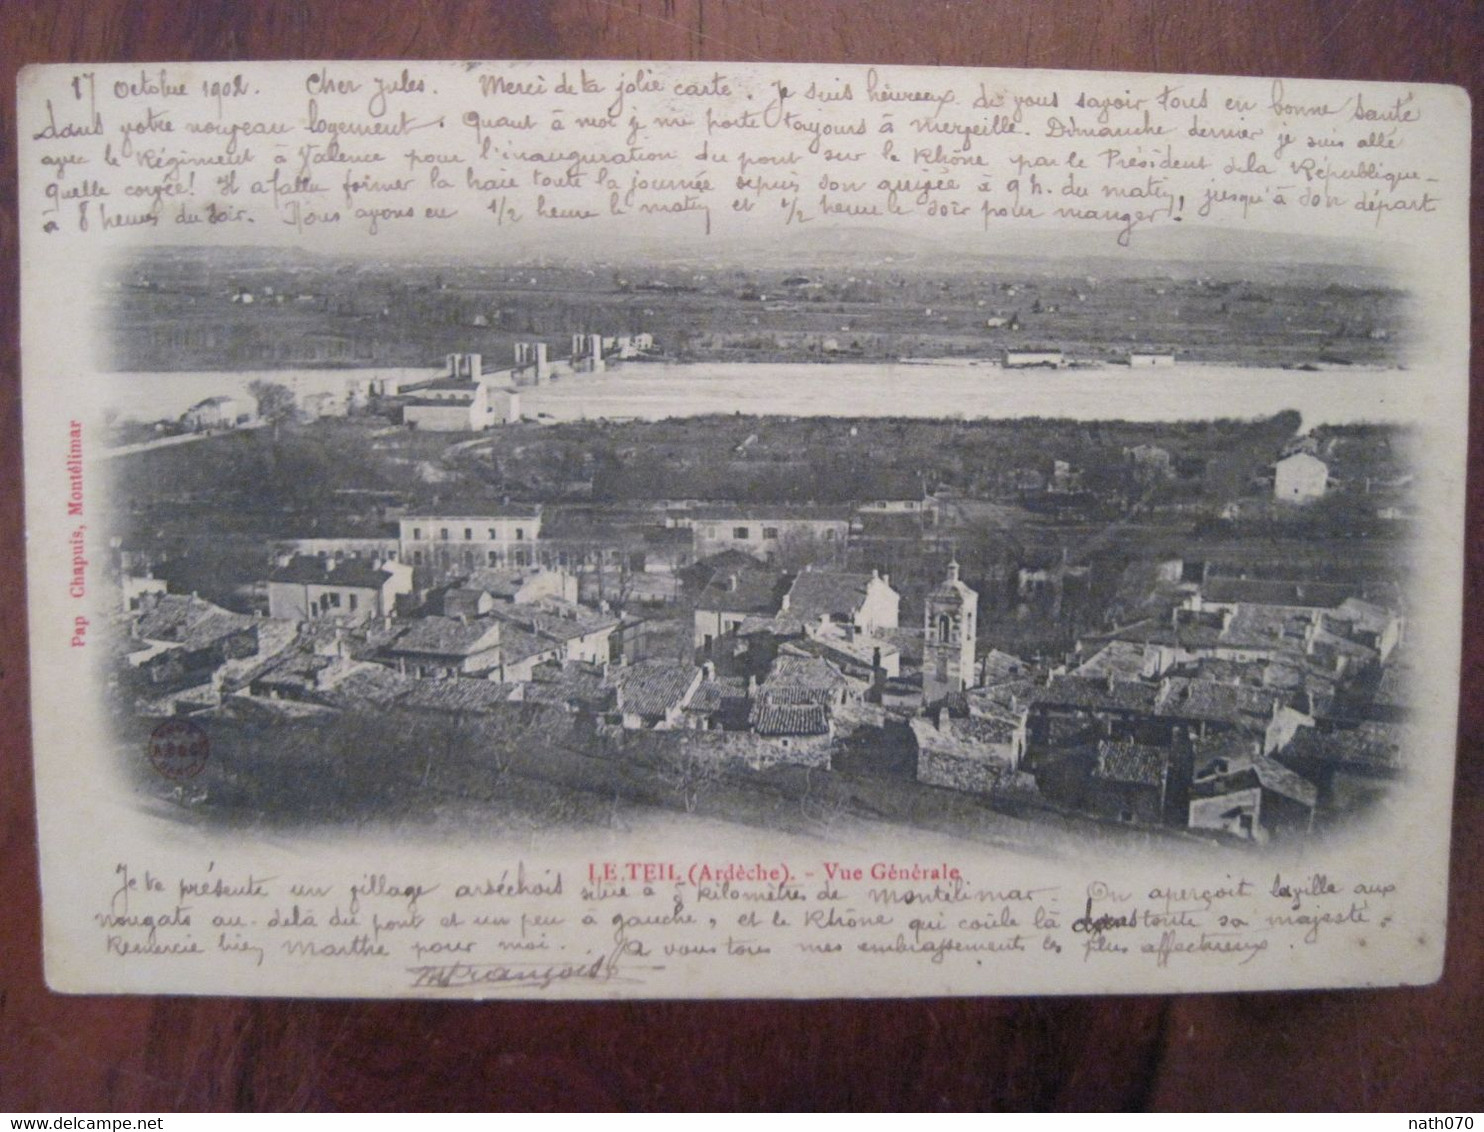 17 octobre 1902. Cher Jules. Merci de ta jolie carte. Je suis héureex de vous savoir tous en bonne santé
dans votre nouveau logement. Quant à moi je me porte toujours à merveille. Dimanche dernier je suis allé
avec le Régiment à Valence pour l'inauguration du pont sur le Rhône par le Président de la République -
quelle corvée! Il a fallu former la haie toute la journée depuis son arrivée à 9 h. du matin, jusqu'à son départ
à 8 heures du soir. Nous avons eu 1/2 heure le matin et 1/2 heure le soir pour manger!
Pap Chapuis, Montélimar
LE TEIL (Ardèche). - Vue Générale
Je te présente un village ardéchois situé à 5 kilomètres de Montélimar. On aperçoit la ville aux
nougats au-delà du pont et un peu à gauche, et le Rhône qui coule là dans toute sa majesté.
Remercie bien Marthe pour moi. A vous tous mes embrassements les plus affectueux.
François
delcampe.net
nath070